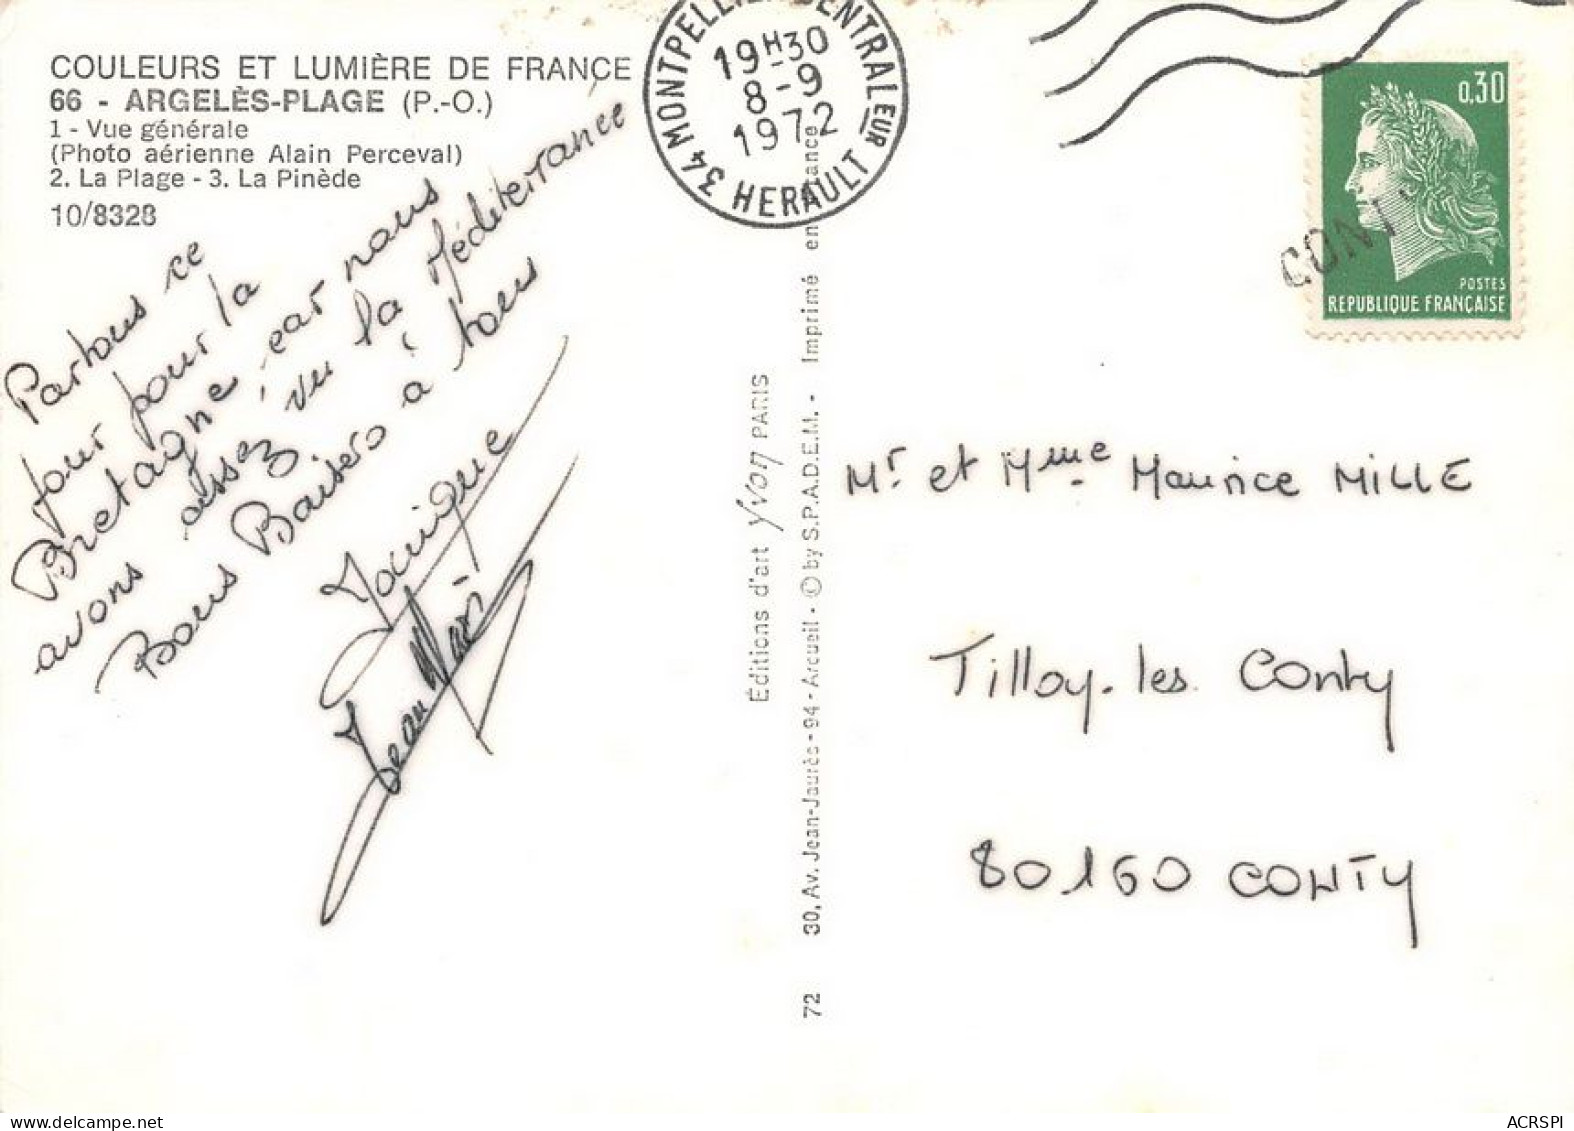 COULEURS ET LUMIÈRE DE FRANCE
66 - ARGELÈS-PLAGE (P.-O.)
1 - Vue générale
(Photo aérienne Alain Perceval)
2. La Plage - 3. La Pinède
10/8328
Partons ce
jour pour la
Bretagne, car nous
avons assez vu la Méditerranée
Bons Baisers à tous
Jean Marie
34 MONTPELLIER CENTRALEUR HERAULT
19H30
8-9
1972
0,30
POSTES
REPUBLIQUE FRANÇAISE
Éditions d'art Yvon PARIS
30, Av. Jean-Jaurès - 94 - Arcueil - © by S.P.A.D.E.M. - Imprimé en
72
Mr et Mme Maurice MILLE
Tilloy-les Conty
80160 CONTY
ACRSPI